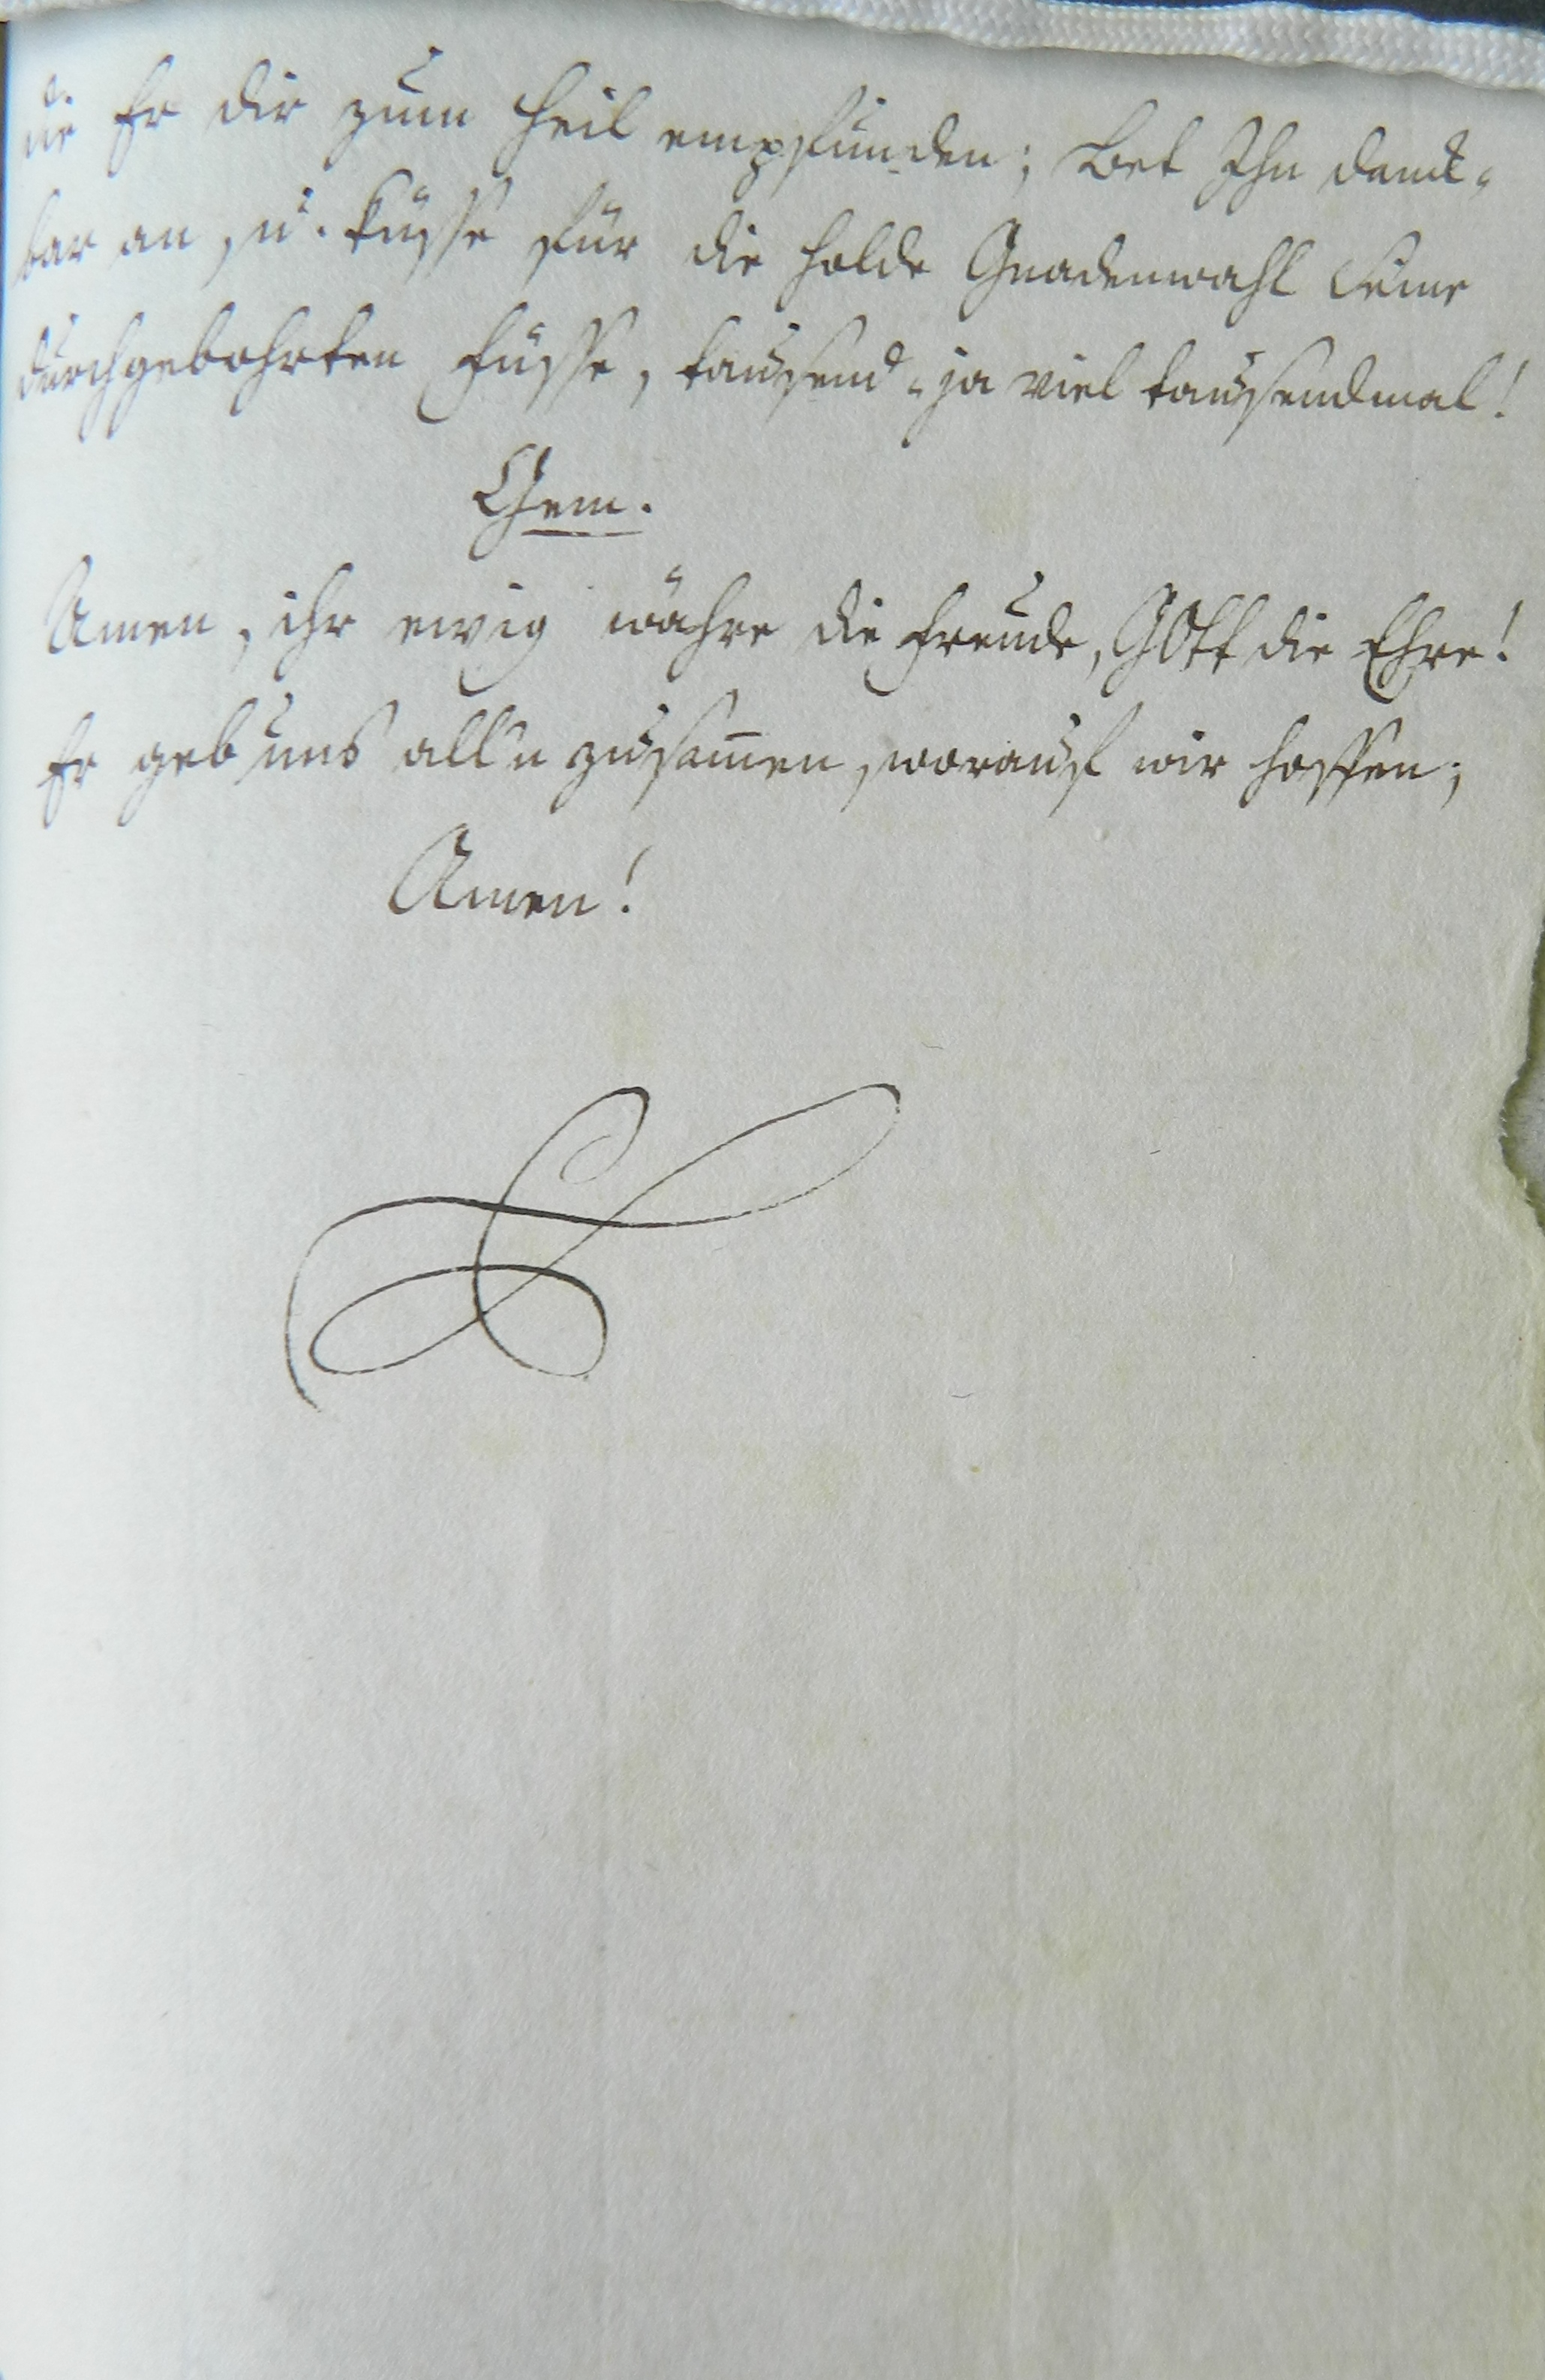 die Er dir zum Heil empfunden; Bet Ihn dank-
bar an, u. küsse für die holde Gnadenwahl Seine
durchgebohrten Füsse, tausend- ja viel tausendmal!
Gem.
Amen, ihr ewig währe die Freude, GOtt die Ehre!
Er geb uns all'n zusam̅en, worauf wir hoffen;
Amen!